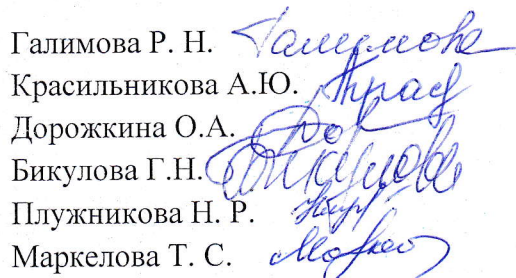 Галимова Р. Н. Галимова
Красильникова А.Ю. Крас
Дорожкина О.А. Дор
Бикулова Г.Н. Бикулова
Плужникова Н. Р.
Маркелова Т. С.